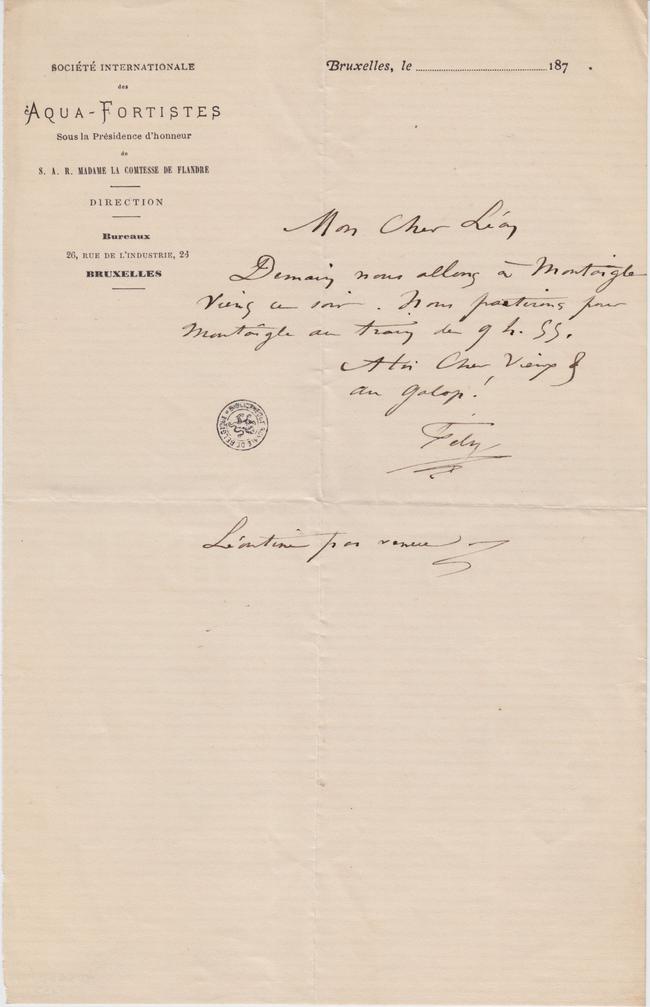 SOCIÉTÉ INTERNATIONALE
des
AQUA-FORTISTES
Sous la Présidence d'honneur
de
S. A. R. MADAME LA COMTESSE DE FLANDRE
DIRECTION
Bureaux
26, RUE DE L'INDUSTRIE, 24
BRUXELLES
Bruxelles, le 187
Mon Cher Léon
Demain nous allons à Montaigle
Viens ce soir. Nous partirons pour
Montaigle au train de 9 h. 55.
A toi Cher Vieux &
au galop!
Fély
BIBLIOTHÈQUE ROYALE DE BELGIQUE
Léontine pas venue